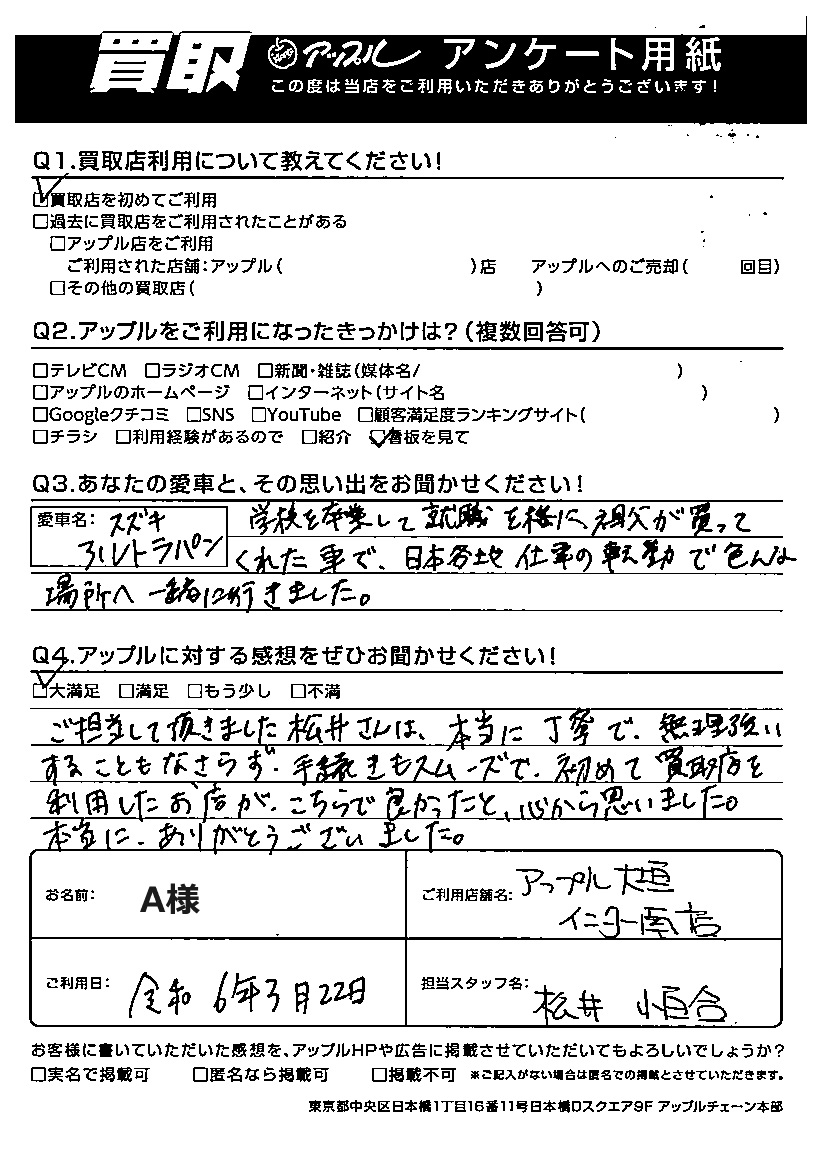 買取 アップル アンケート用紙
この度は当店をご利用いただきありがとうございます!
Q1.買取店利用について教えてください!
☑買取店を初めてご利用
□過去に買取店をご利用されたことがある
□アップル店をご利用
ご利用された店舗:アップル( )店 アップルへのご売却( 回目)
□その他の買取店( )
Q2.アップルをご利用になったきっかけは?(複数回答可)
□テレビCM □ラジオCM □新聞・雑誌(媒体名/ )
□アップルのホームページ □インターネット(サイト名 )
□Googleクチコミ □SNS □YouTube □顧客満足度ランキングサイト( )
□チラシ □利用経験があるので □紹介 ☑看板を見て
Q3.あなたの愛車と、その思い出をお聞かせください!
愛車名: スズキ
アルトラパン
学校を卒業して就職を機に、祖父が買って
くれた車で、日本各地 仕事の転勤で色んな
場所へ 一緒に行きました。
Q4.アップルに対する感想をぜひお聞かせください!
☑大満足 □満足 □もう少し □不満
ご担当して頂きました松井さんは、本当に丁寧で、無理強い
することもなさらず、手続きもスムーズで、初めて買取店を
利用したお店が、こちらで良かったと、心から思いました。
本当に、ありがとうございました。
お名前: A様
ご利用店舗名: アップル大垣
インター南店
ご利用日: 令和 6年3月22日
担当スタッフ名: 松井
お客様に書いていただいた感想を、アップルHPや広告に掲載させていただいてもよろしいでしょうか?
□実名で掲載可 □匿名なら掲載可 □掲載不可 ※ご記入がない場合は匿名での掲載とさせていただきます。
東京都中央区日本橋1丁目16番11号日本橋Dスクエア9F アップルチェーン本部